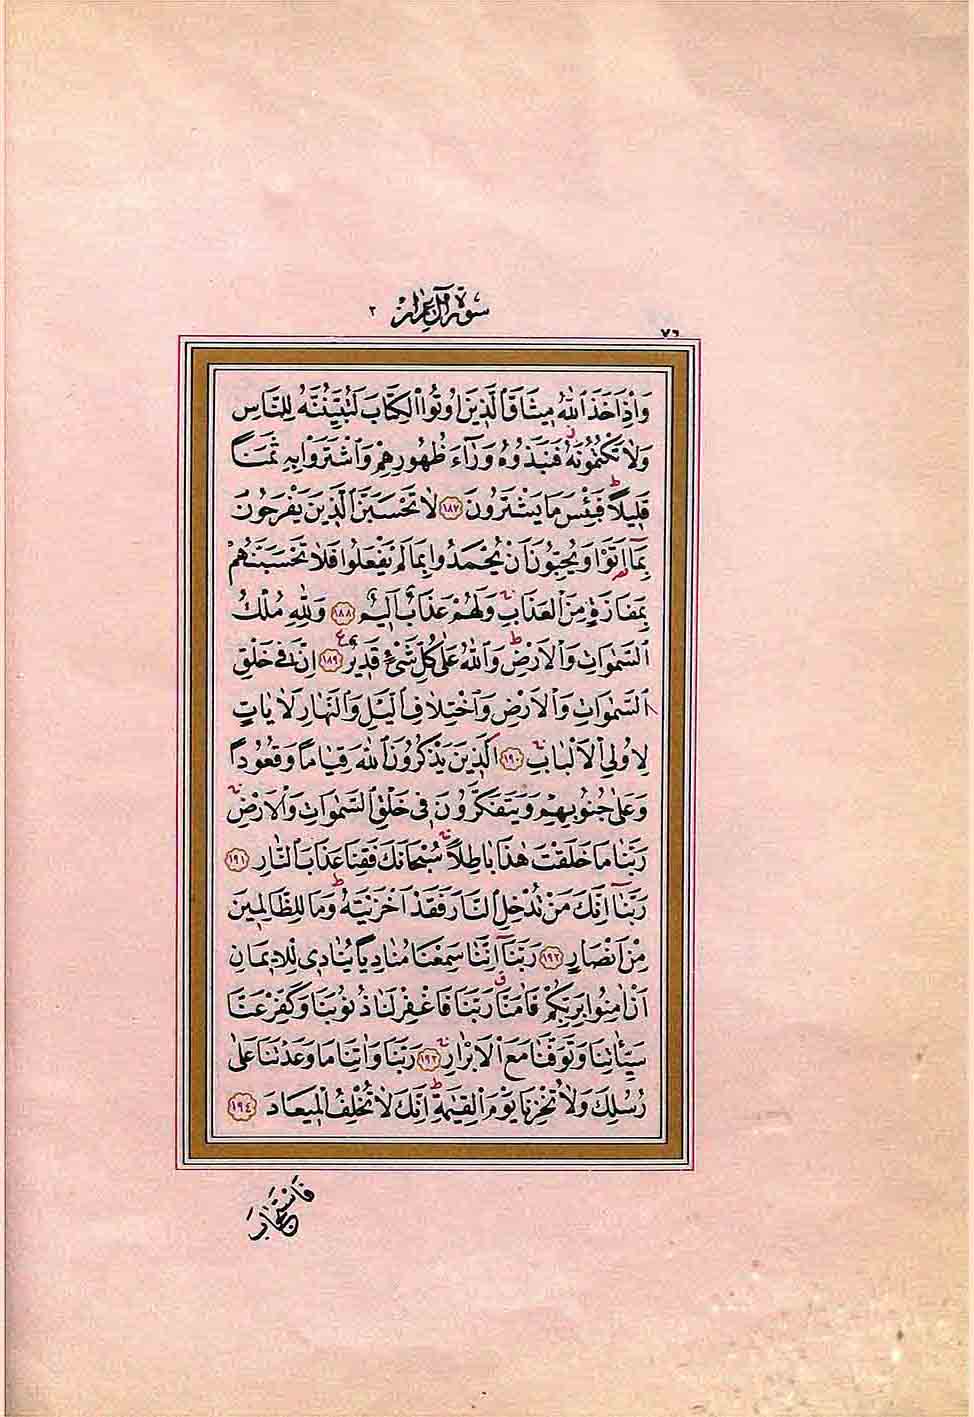 سورة آل عمران ٣
٧٦
وَاِذْ اَخَذَ اللّٰهُ مٖيثَاقَ الَّذٖينَ اُوتُوا الْكِتَابَ لَتُبَيِّنُنَّهُ لِلنَّاسِ
وَلَا تَكْتُمُونَهُ فَنَبَذُوهُ وَرَٓاءَ ظُهُورِهِمْ وَاشْتَرَوْا بِهٖ ثَمَنًا
قَلٖيلًا فَبِئْسَ مَا يَشْتَرُونَ ١٨٧ لَا تَحْسَبَنَّ الَّذٖينَ يَفْرَحُونَ
بِمَٓا اَتَوْا وَيُحِبُّونَ اَنْ يُحْمَدُوا بِمَا لَمْ يَفْعَلُوا فَلَا تَحْسَبَنَّهُمْ
بِمَفَازَةٍ مِنَ الْعَذَابِ وَلَهُمْ عَذَابٌ اَلٖيمٌ ١٨٨ وَلِلّٰهِ مُلْكُ
السَّمٰوَاتِ وَالْاَرْضِ وَاللّٰهُ عَلٰى كُلِّ شَيْءٍ قَدٖيرٌ ١٨٩ اِنَّ فٖي خَلْقِ
السَّمٰوَاتِ وَالْاَرْضِ وَاخْتِلَافِ الَّيْلِ وَالنَّهَارِ لَاٰيَاتٍ
لِاُولِي الْاَلْبَابِ ١٩٠ اَلَّذٖينَ يَذْكُرُونَ اللّٰهَ قِيَامًا وَقُعُودًا
وَعَلٰى جُنُوبِهِمْ وَيَتَفَكَّرُونَ فٖي خَلْقِ السَّمٰوَاتِ وَالْاَرْضِ
رَبَّنَا مَا خَلَقْتَ هٰذَا بَاطِلًا سُبْحَانَكَ فَقِنَا عَذَابَ النَّارِ ١٩١
رَبَّنَٓا اِنَّكَ مَنْ تُدْخِلِ النَّارَ فَقَدْ اَخْزَيْتَهُ وَمَا لِلظَّالِمٖينَ
مِنْ اَنْصَارٍ ١٩٢ رَبَّنَٓا اِنَّنَا سَمِعْنَا مُنَادِيًا يُنَادٖي لِلْاٖيمَانِ
اَنْ اٰمِنُوا بِرَبِّكُمْ فَاٰمَنَّا رَبَّنَا فَاغْفِرْ لَنَا ذُنُوبَنَا وَكَفِّرْ عَنَّا
سَيِّـَٔاتِنَا وَتَوَفَّنَا مَعَ الْاَبْرَارِ ١٩٣ رَبَّنَا وَاٰتِنَا مَا وَعَدْتَنَا عَلٰى
رُسُلِكَ وَلَا تُخْزِنَا يَوْمَ الْقِيٰمَةِ اِنَّكَ لَا تُخْلِفُ الْمٖيعَادَ ١٩٤
فَاسْتَجَابَ